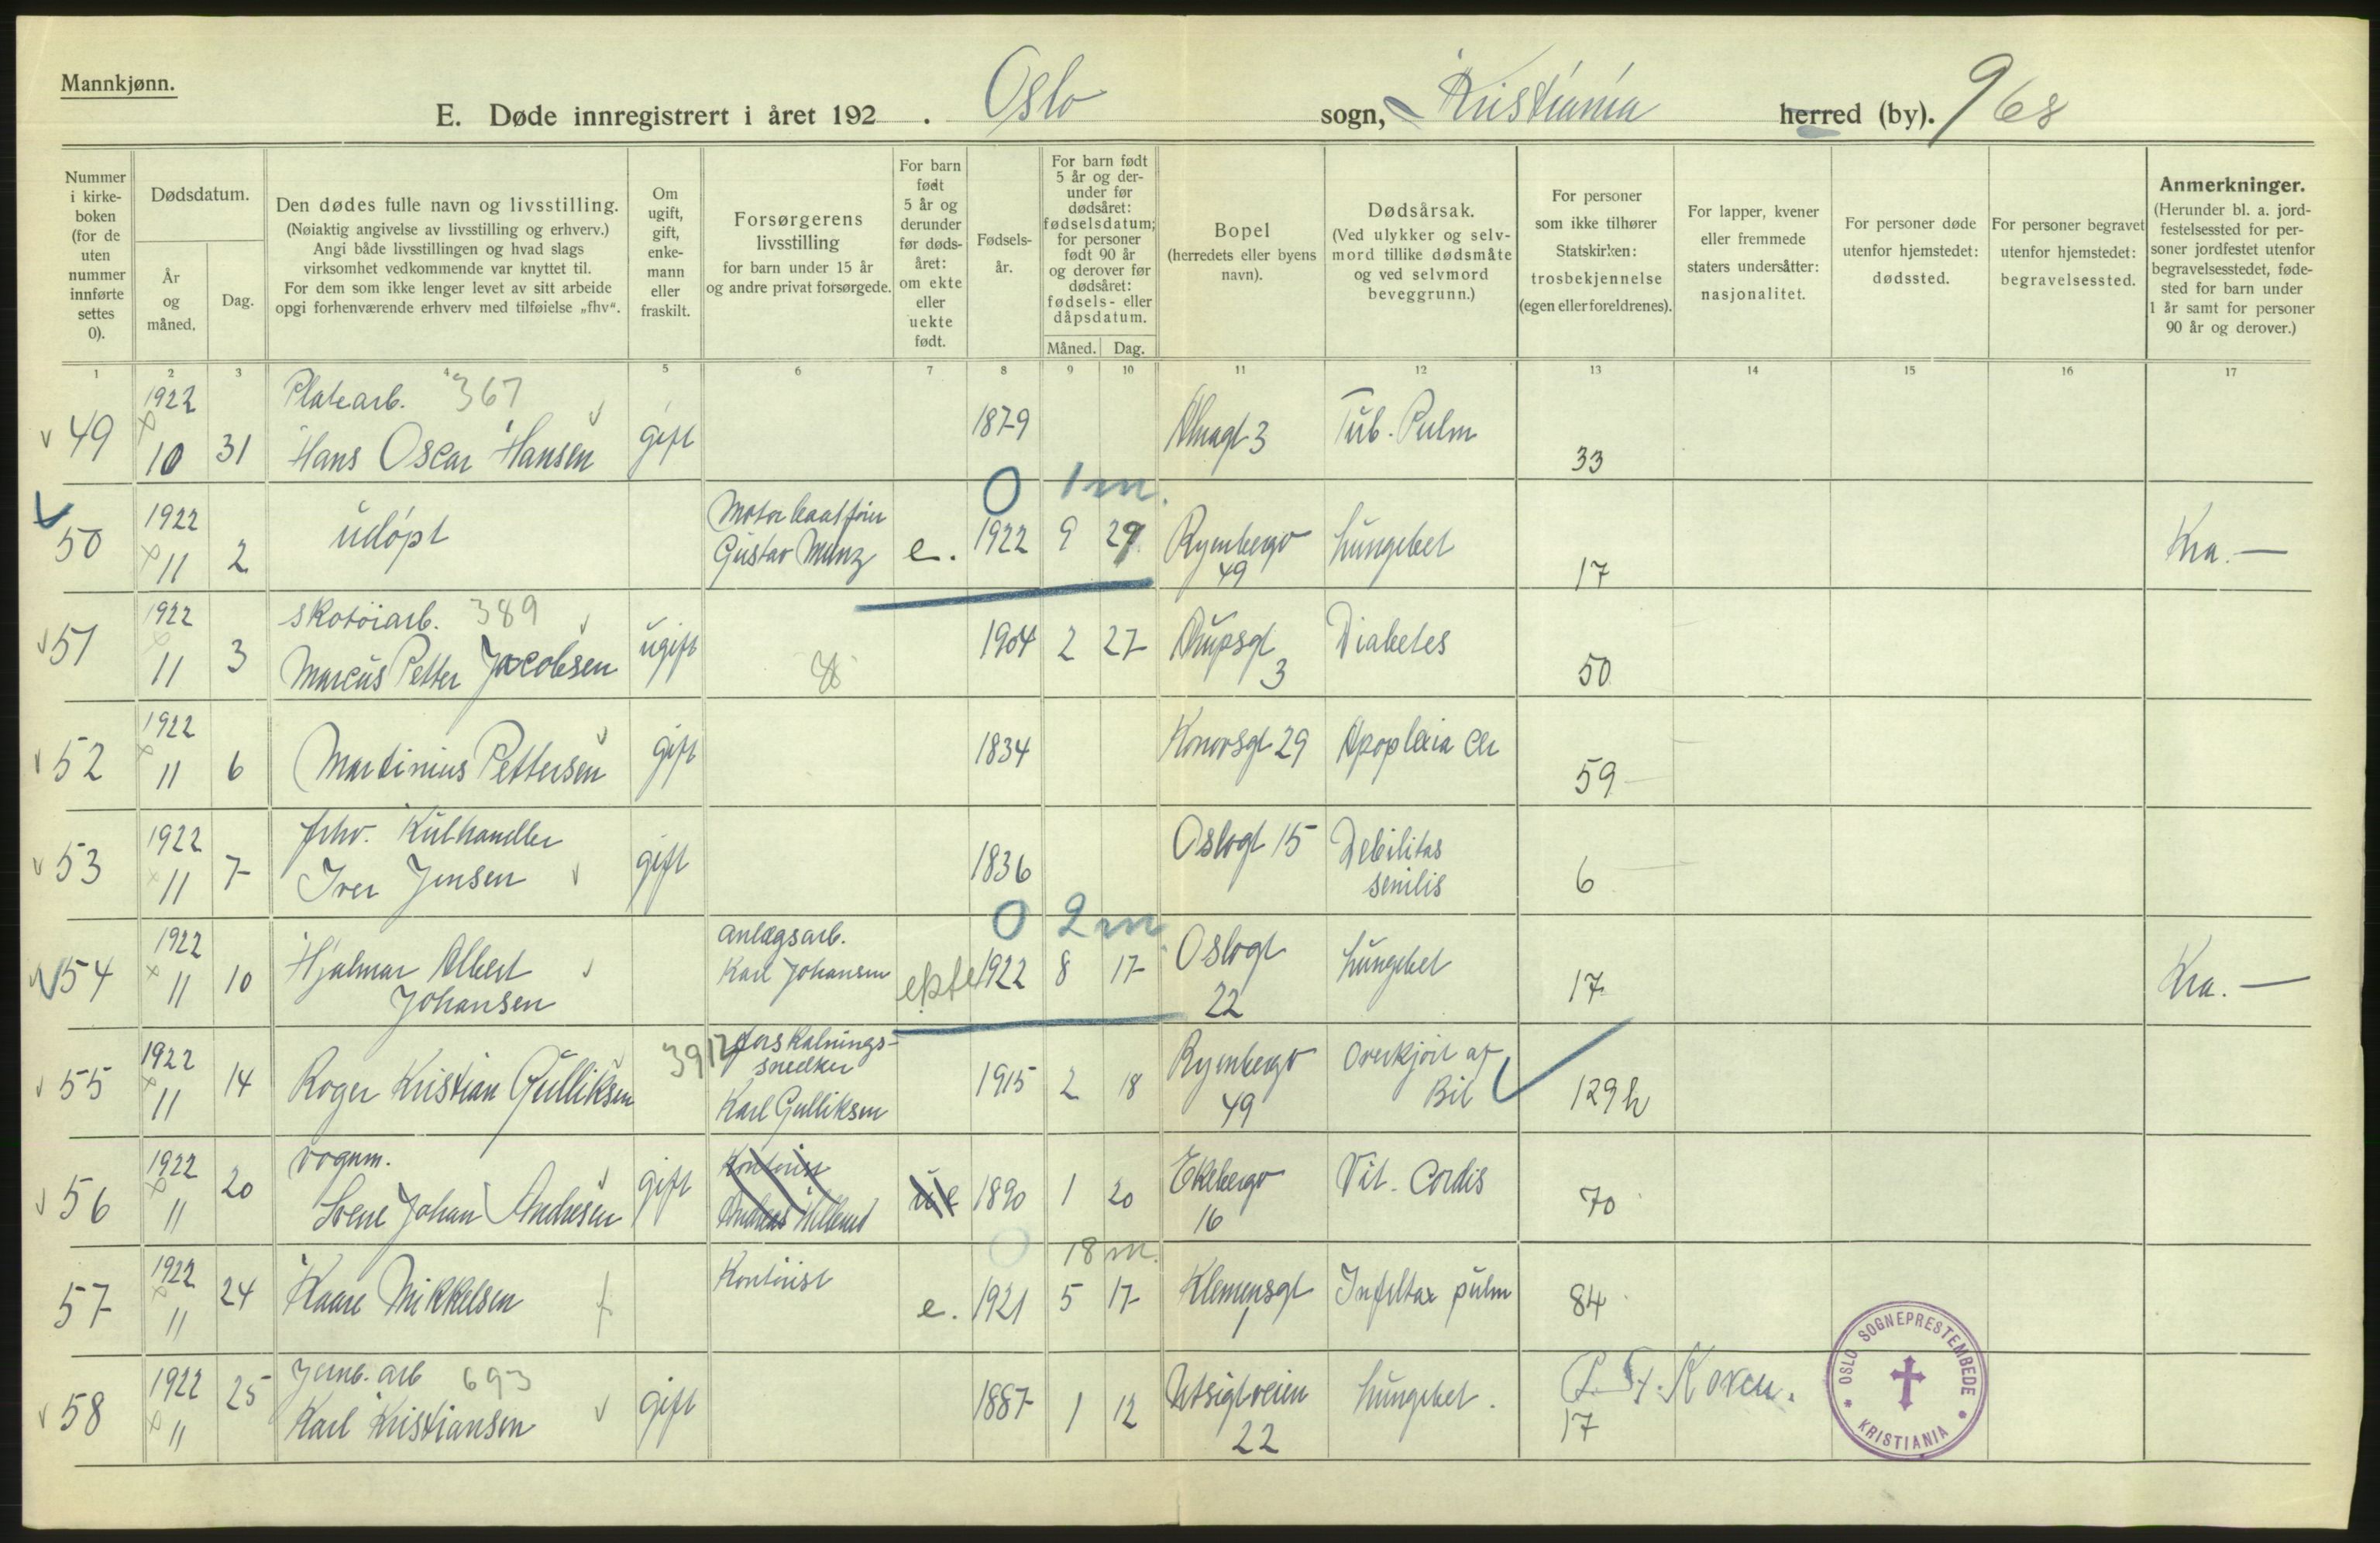 Mannkjønn.
E. Døde innregistrert i året 192 . Oslo sogn, Kristiania herred (by). 9/68
Nummer i kirkeboken (for de uten nummer innførte settes 0).
Dødsdatum.
År og måned.
Dag.
Den dødes fulle navn og livsstilling.
(Nøiaktig angivelse av livsstilling og erhverv.)
Angi både livsstillingen og hvad slags
virksomhet vedkommende var knyttet til.
For dem som ikke lenger levet av sitt arbeide
opgi forhenværende erhverv med tilføielse „fhv“.
Om ugift, gift, enkemann eller fraskilt.
Forsørgerens livsstilling
for barn under 15 år
og andre privat forsørgede.
For barn født 5 år og derunder før dødsåret: om ekte eller uekte født.
Fødselsår.
For barn født 5 år og derunder før dødsåret: fødselsdatum; for personer født 90 år og derover før dødsåret: fødsels- eller dåpsdatum.
Måned. Dag.
Bopel
(herredets eller byens navn).
Dødsårsak.
(Ved ulykker og selvmord tillike dødsmåte og ved selvmord beveggrunn.)
For personer som ikke tilhører Statskirken: trosbekjennelse (egen eller foreldrenes).
For lapper, kvener eller fremmede staters undersåtter: nasjonalitet.
For personer døde utenfor hjemstedet: dødssted.
For personer begravet utenfor hjemstedet: begravelsessted.
Anmerkninger.
(Herunder bl. a. jordfestelsessted for personer jordfestet utenfor begravelsesstedet, fødested for barn under 1 år samt for personer 90 år og derover.)
1 2 3 4 5 6 7 8 9 10 11 12 13 14 15 16 17
1922 Platearb. 367
49 10 31 Hans Oscar Hansen gift 1879 3 Tub. Pulm 33
0 1 m.
1922 Motorbaatfører
50 11 2 udøpt Gustav Munz e. 1922 9 29 Rymbergv 49 Lungebet 17 Kra. —
1922 Skotøiarb. 389
51 11 3 Marcus Petter Jacobsen ugift 1904 2 27 3 Diabetes 50
1922
52 11 6 Martinius Pettersen gift 1834 Konowsgt 29 Apoplexia 59
1922 fhv. Kulhandler
53 11 7 Iver Jensen gift 1836 Oslogt 15 Debilitas senilis 6
0 2 m
1922 anlægsarb.
54 11 10 Hjalmar Albert Johansen Karl Johansen ekte 1922 8 17 Oslogt 22 Lungebet 17 Kra. —
1922 3912 forskalningssnedker
55 11 14 Roger Kristian Gulliksen Karl Gulliksen 1915 2 18 Rymbergv 49 Overkjørt af Bil 129 h
1922 vognm.
56 11 20 Johan Andresen gift 1890 1 20 Ekebergv 16 Vit. Cordis 70
18 m.
1922 Kontorist
57 11 24 Kaare Mikkelsen e. 1921 5 17 Klemensgt 1 pulm 84
1922 Jernb. arb 693
58 11 25 Karl Kristiansen gift 1887 1 12 Utsigtveien 22 Lungebet. 17
OSLO SOGNEPRESTEMBEDE
KRISTIANIA